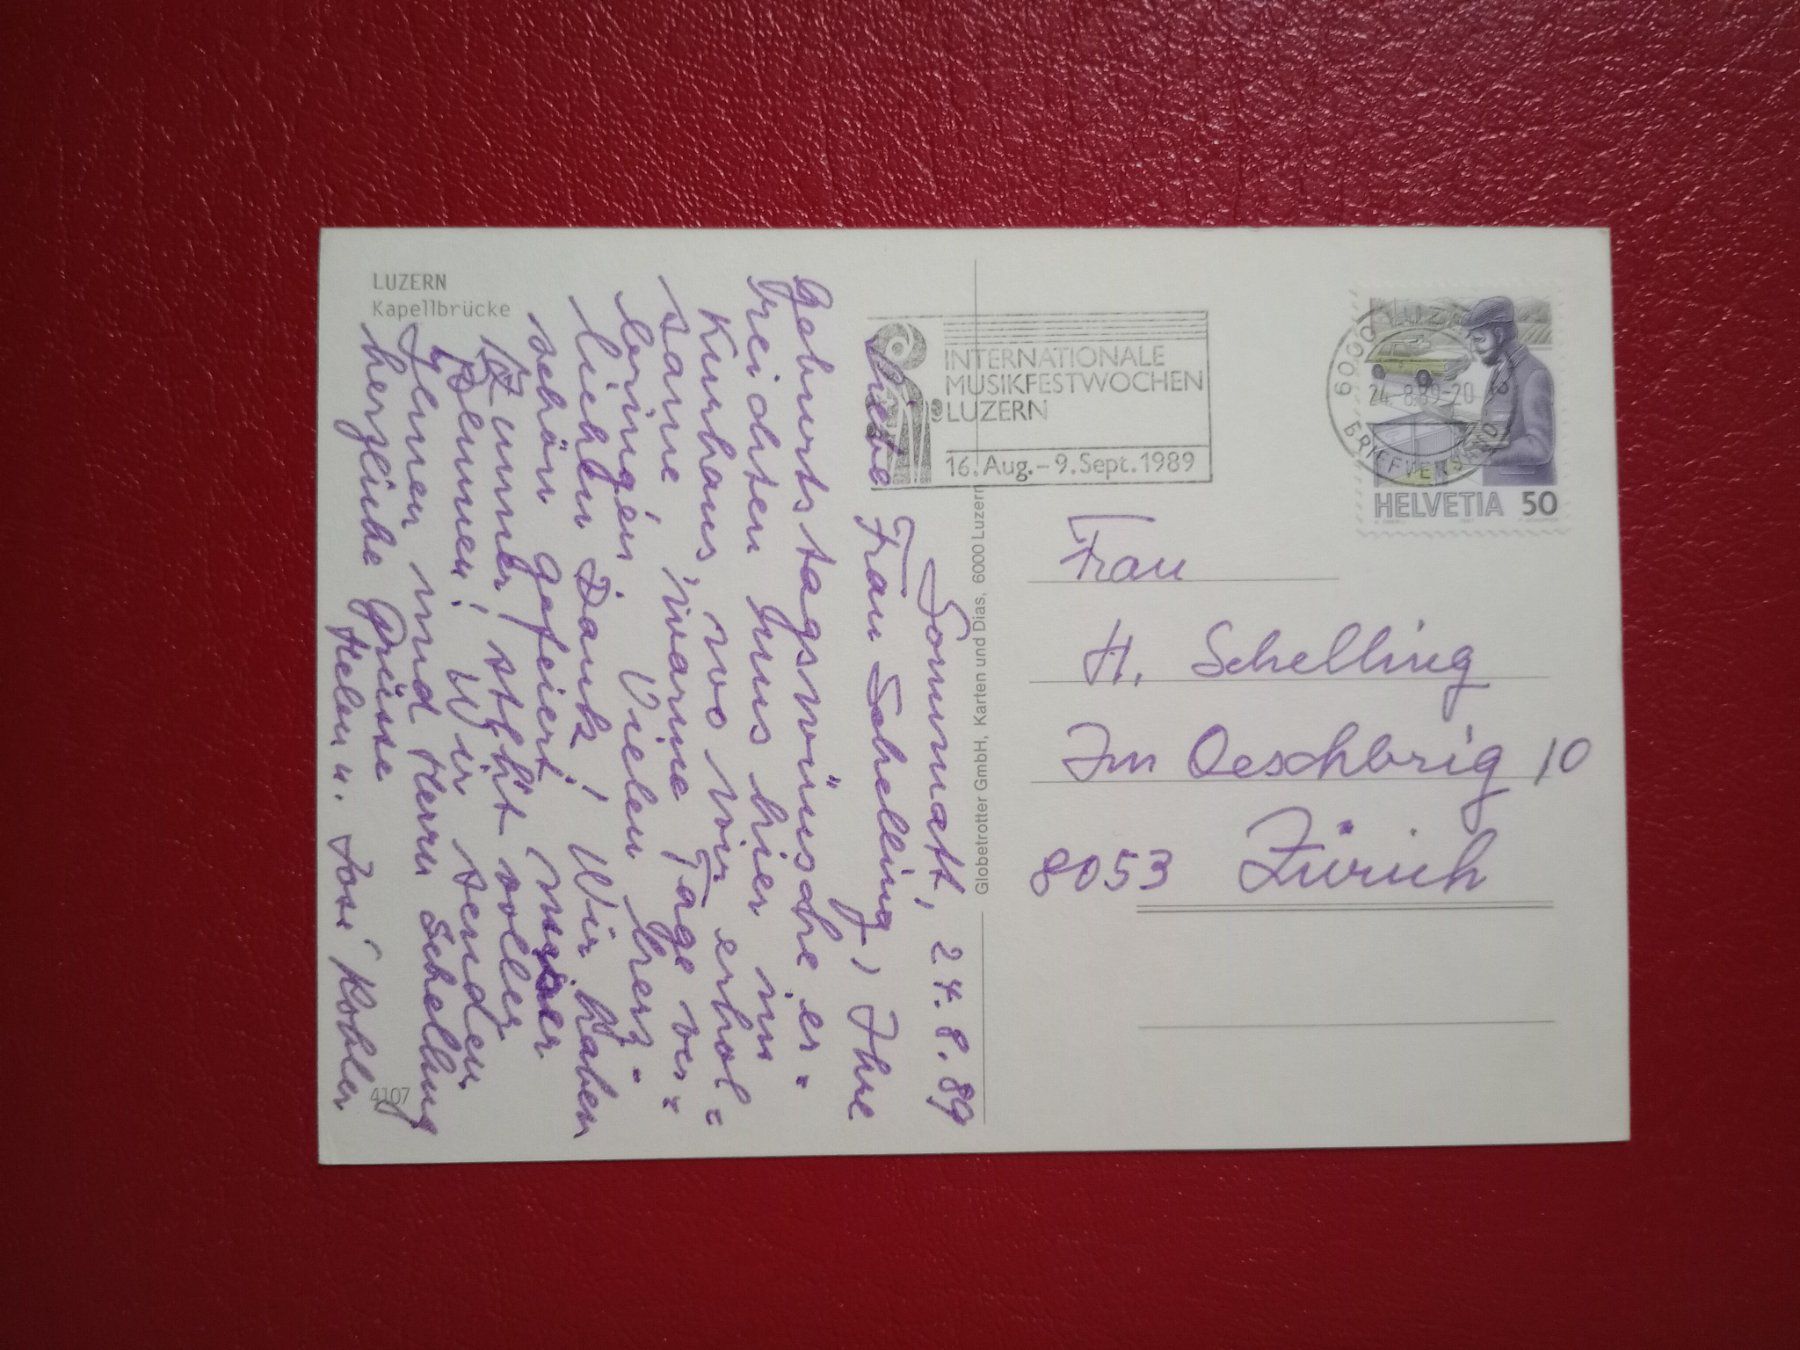 LUZERN
Kapellbrücke
Sonnmatt, 24.8.89
Liebe Frau Schelling, Ihre
Geburtstagswünsche er=
reichten uns hier im
Kurhaus, wo wir erhol=
same, warme Tage ver=
bringen. Vielen herz=
lichen Dank! Wir haben
schön gefeiert, unser
Zimmer steht voller
Blumen! Wir senden
Ihnen und Herrn Schelling
herzliche Grüsse
Helen u. Josi Kohler
4107
Globetrotter GmbH, Karten und Dias, 6000 Luzern
INTERNATIONALE
MUSIKFESTWOCHEN
LUZERN
16. Aug. – 9. Sept. 1989
6000 LUZERN
24.-8.89-20
BRIEFVERSAND
HELVETIA 50
Frau
H. Schelling
Im Oeschbrig 10
8053 Zürich